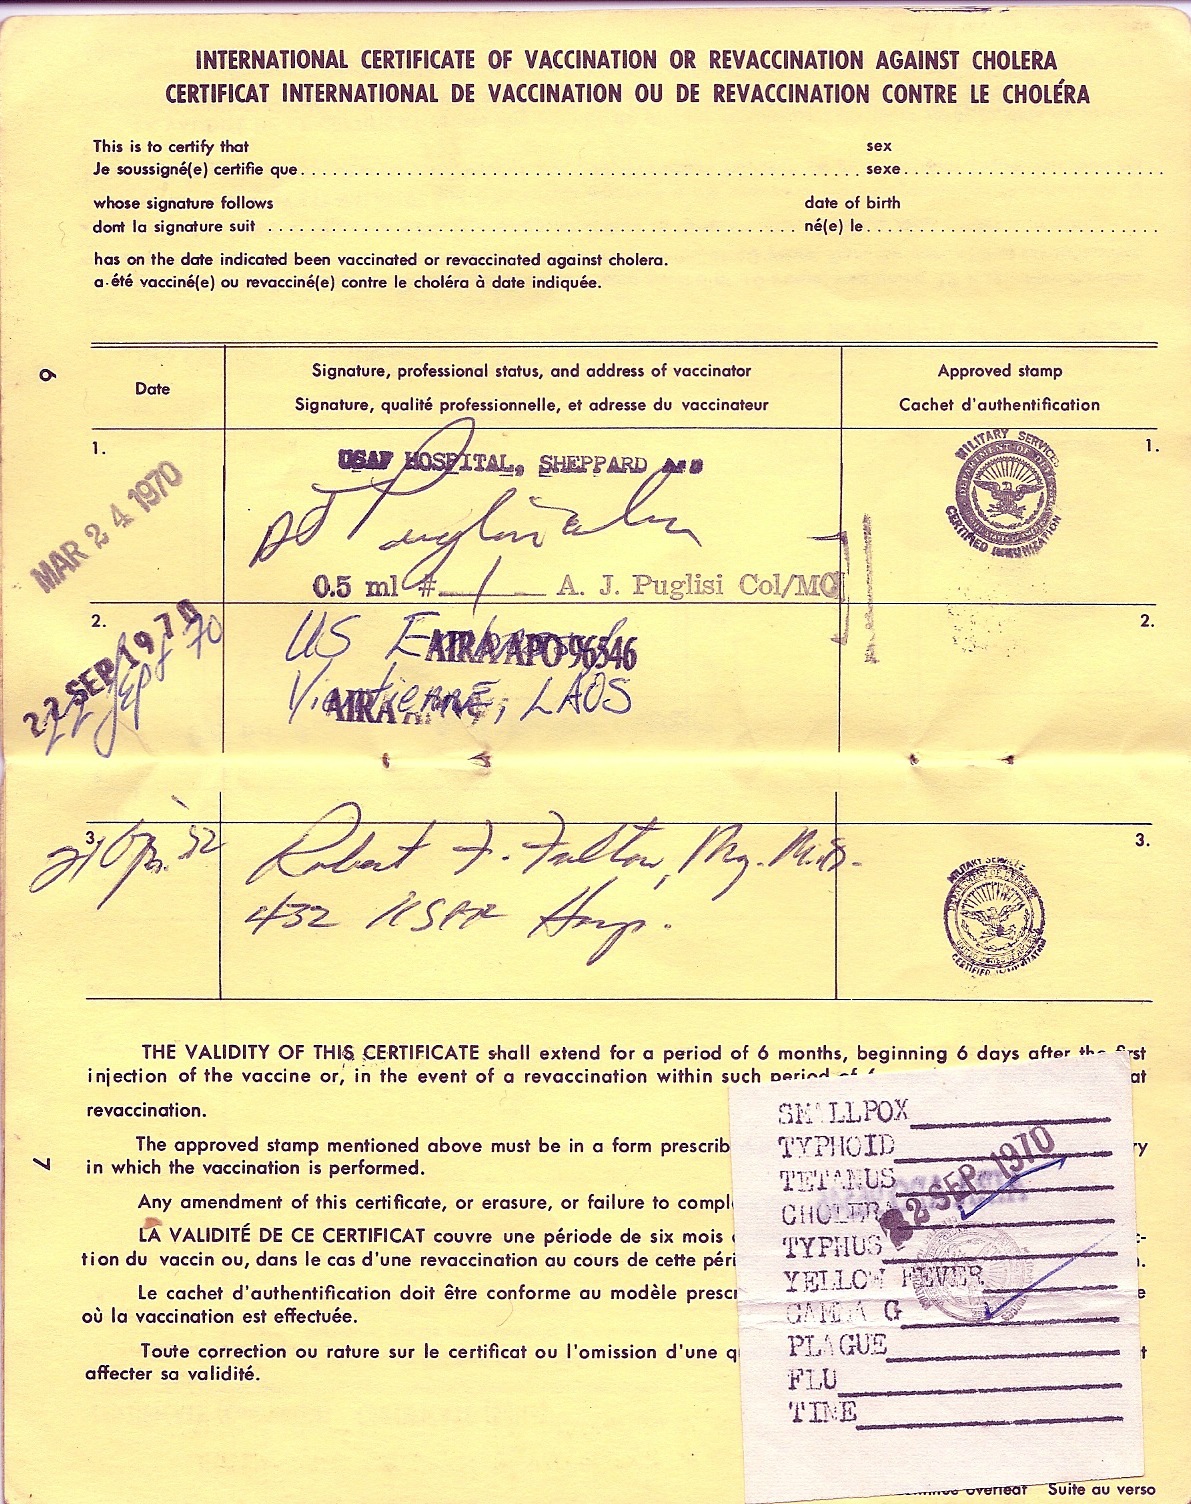 INTERNATIONAL CERTIFICATE OF VACCINATION OR REVACCINATION AGAINST CHOLERA
CERTIFICAT INTERNATIONAL DE VACCINATION OU DE REVACCINATION CONTRE LE CHOLÉRA
This is to certify that sex
Je soussigné(e) certifie que sexe
whose signature follows date of birth
dont la signature suit né(e) le
has on the date indicated been vaccinated or revaccinated against cholera.
a été vacciné(e) ou revacciné(e) contre le choléra à date indiquée.
6
Date
Signature, professional status, and address of vaccinator
Signature, qualité professionnelle, et adresse du vaccinateur
Approved stamp
Cachet d'authentification
1.
MAR 24 1970
USAF HOSPITAL, SHEPPARD AFB
0.5 ml # 1 A. J. Puglisi Col/MC
MILITARY SERVICES
CERTIFIED IMMUNIZATION
1.
2.
22 SEP 1970
22 Sept 70
US Embassy
AIRA APO 96546
Vientienne, LAOS
AIRA
2.
3.
Robert F. Fulton,
432 USAF Hosp.
MILITARY SERVICES
3.
THE VALIDITY OF THIS CERTIFICATE shall extend for a period of 6 months, beginning 6 days after the first
injection of the vaccine or, in the event of a revaccination within such period of 6 at
revaccination.
7
The approved stamp mentioned above must be in a form prescrib ry
in which the vaccination is performed.
Any amendment of this certificate, or erasure, or failure to compl
LA VALIDITÉ DE CE CERTIFICAT couvre une période de six mois c-
tion du vaccin ou, dans le cas d'une revaccination au cours de cette péri n.
Le cachet d'authentification doit être conforme au modèle prescr e
où la vaccination est effectuée.
Toute correction ou rature sur le certificat ou l'omission d'une q t
affecter sa validité.
SMALLPOX
TYPHOID
TETANUS
CHOLERA
22 SEP 1970
TYPHUS
YELLOW FEVER
GAMMA G
PLAGUE
FLU
TINE
overleaf Suite au verso